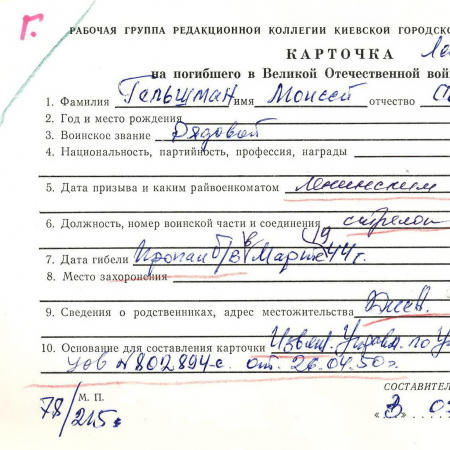 Г.
РАБОЧАЯ ГРУППА РЕДАКЦИОННОЙ КОЛЛЕГИИ КИЕВСКОЙ ГОРОДСКО
КАРТОЧКА
на погибшего в Великой Отечественной вой
1. Фамилия Гельцман имя Моисей отчество
2. Год и место рождения
3. Воинское звание Рядовой
4. Национальность, партийность, профессия, награды
5. Дата призыва и каким райвоенкоматом Ленинским
6. Должность, номер воинской части и соединения стрелок
7. Дата гибели Пропал б/в в Марте 44 г.
8. Место захоронения
9. Сведения о родственниках, адрес местожительства
10. Основание для составления карточки Извещ. Управл. по У
№ 802894-с. от. 26.04.50 г.
СОСТАВИТЕЛ
М. П.
78/215
«3